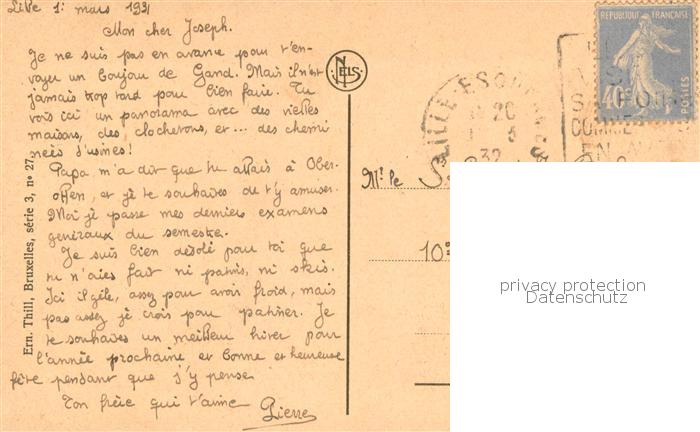 Lille 1: mars 193
Mon cher Joseph.
Je ne suis pas en avance pour t'en-
voyer un bonjou de Gand. Mais il n'est
jamais trop tard pour bien faire. Tu
vois ici un panorama avec des vieilles
maisons, des clochetons, et ... des chemi
nées d'usines!
Papa m'a dit que tu allais à Ober-
, et je te souhaites de t'y amuser.
Moi je passe mes derniers examens
généraux du semestre.
Je suis bien désolé pour toi que
tu n'aies fait ni patins, ni skis.
Ici il gèle, assez pour avoir froid, mais
pas assez je crois pour patiner. Je
te souhaites un meilleur hiver pour
l'année prochaine et bonne et heureuse
fête pendant que j'y pense
Ton frère qui t'aime Pierre
Ern. Thill, Bruxelles, série 3, n° 27.
NELS
REPUBLIQUE FRANÇAISE
40c
POSTES
LILLE
32
COMME
Mr le
10
privacy protection
Datenschutz